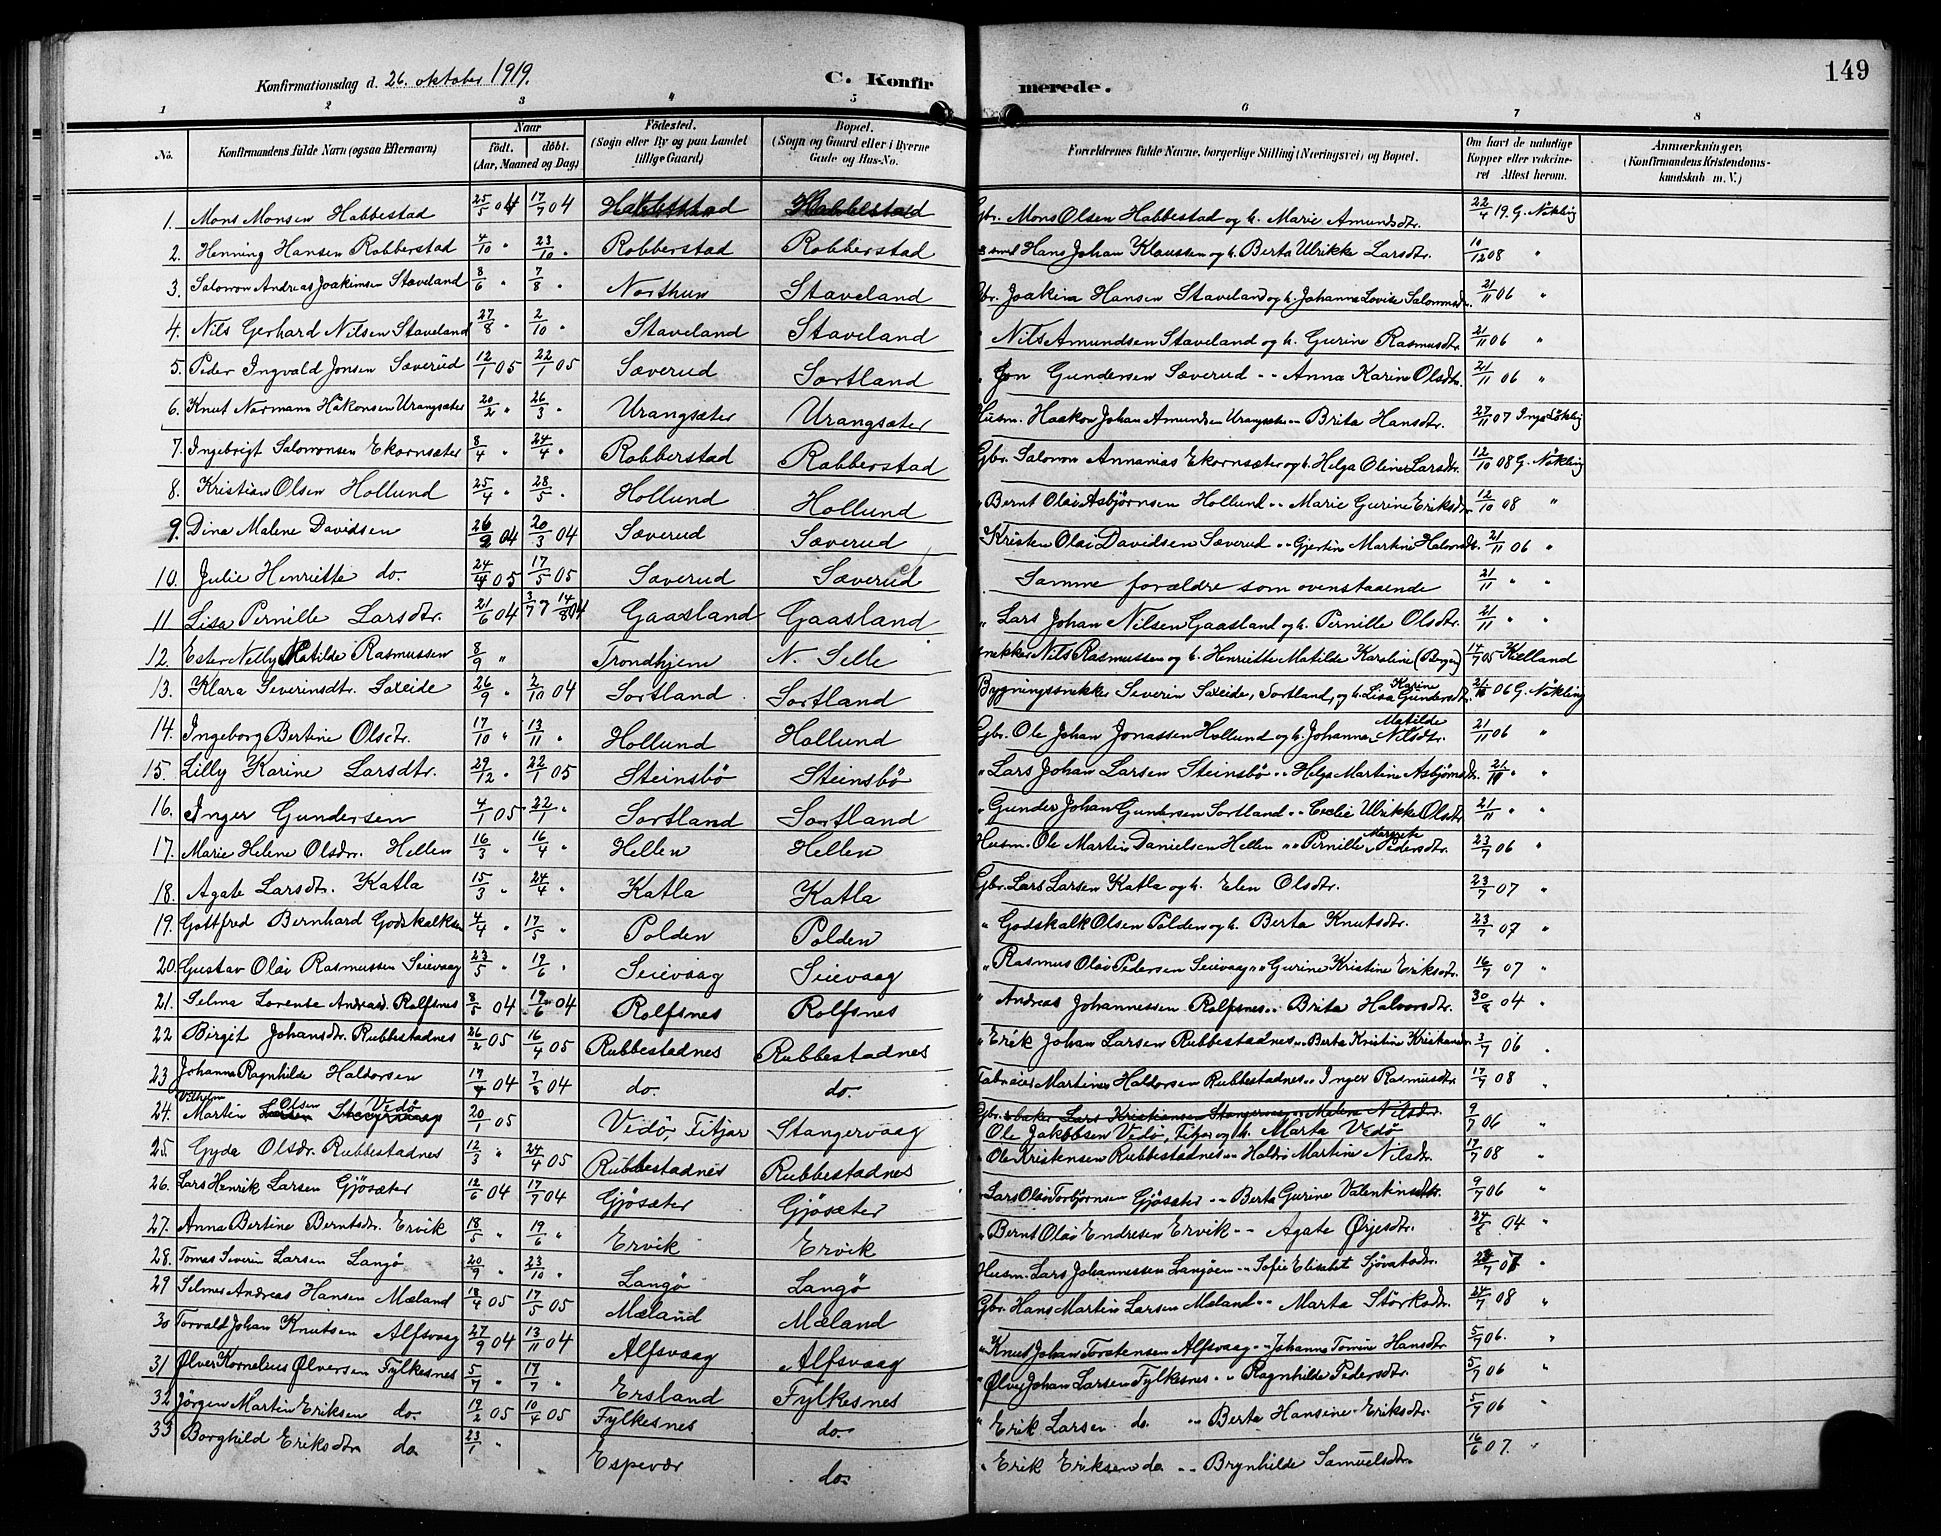 149
Konfirmationsdag d. 26. oktober 1919. C. Konfirmerede.
1 2 3 " 5 6 7 8
No. Konfirmandens fulde Navn (ogsaa Efternavn) Naar födt. döbt. (Aar, Maaned og Dag) Födested. (Sogn eller By og paa Landet tillige Gaard) Bopæl. (Sogn og Gaard eller i Byerne Gade og Hus-No. Forældrenes fulde Navne, borgerlige Stilling (Næringsvei) og Bopæl. Om havt de naturlige Kopper eller vakcineret. Attest herom. Anmærkninger. (Konfirmandens Kristendomskundskab m. V.)
1. Mons Monsen Habbestad 25/5 04 17/7 04 Habbestad Habbestad Gbr. Mons Olsen Habbestad og h. Marie Amundsdtr. 22/4 19. G. Nökling
2. Henning Hansen Robberstad 4/10 " 23/10 " Robberstad Robberstad smed Hans Johan Klaussen og h. Berta Ulrikke Larsdtr. 10/12 08 "
3. Salomon Andreas Joakimsen Staveland 8/6 " 7/8 " Northun Staveland Gbr. Joakim Hansen Staveland og h. Johanne Lovise Salomonsdtr. 21/11 06 "
4. Nils Gerhard Nilsen Staveland 27/8 " 2/10 " Staveland Staveland " Nils Amundsen Staveland og h. Gurine Rasmusdtr. 21/11 06 "
5. Peder Ingvald Jonsen Sæverud 12/1 05 22/1 05 Sæverud Sortland " Jon Gundersen Sæverud " " Anna Karine Olsdtr. 21/11 06 "
6. Knut Normann Håkonsen Urangsæter 20/2 " 26/3 " Urangsæter Urangsæter Husm. Haakon Johan Amundsen Urangsæter " " Brita Hansdtr. 27/11 07
7. Ingebrigt Salomonsen Ekornsæter 8/4 " 24/4 " Robberstad Robberstad Gbr. Salomon Annanias Ekornsæter og h. Helga Oline Larsdtr. 12/10 08 G. Nökling
8. Kristian Olsen Hollund 25/4 " 28/5 " Hollund Hollund " Bernt Olai Asbjørnsen Hollund " " Marie Gurine Eriksdtr. 12/10 08 "
9. Dina Malene Davidsen 26/2 04 20/3 04 Sæverud Sæverud Kristen Olai Davidsen Sæverud " " Gjertine Martine Halvorsdtr. 21/11 06 "
10. Julie Henriette do. 24/4 05 17/5 05 Sæverud Sæverud Samme forældre som ovenstaaende 21/11 " "
11 Lisa Pernille Larsdtr. 21/6 04 3/7 7 14/8 04 Gaasland Gaasland " Lars Johan Nilsen Gaasland og h. Pernille Olsdtr. 21/11 " "
12. Ester Nelly Matilde Rasmussen 8/9 " Trondhjem N. Selle snekker Nils Rasmussen og h. Henriette Matilde Karoline (Bergen) 14/7 05 Kielland
13. Klara Severinsdtr. Sæxeide 26/9 " 2/10 04 Sortland Sortland Bygningssnekker Severin Saxeide, Sortland, og h. Lisa Karine Gundersdtr. 21/11 06 G. Nökling
14. Ingeborg Bertine Olsdtr. 17/10 " 13/11 " Hollund Hollund Gbr. Ole Johan Jonassen Hollund og h. Johanne Matilde Nilsdtr. 21/11 06 "
15. Lilly Karine Larsdtr. 29/12 " 22/1 05 Steinsbö Steinsbö " Lars Johan Larsen Steinsbø " " Helga Martine Asbjørnsdtr. 21/11 " "
16. Inger Gundersen 4/1 05 22/1 " Sortland Sortland " Gunder Johan Gundersen Sortland " " Cecelie Ulrikke Olsdtr 21/11 " "
17. Marie Helene Olsdtr. Hellen 16/3 " 16/4 " Hellen Hellen Husm. Ole Martin Danielsen Hellen " " Pernille Margrete Pedersdtr. 23/7 06 "
18. Agate Larsdtr. Katla 15/3 " 24/4 " Katla Katla Gbr. Lars Larsen Katla og h. Elen Olsdtr. 23/7 07 "
19. Gottfred Bernhard Godskalksen 4/4 " 17/5 " Polden Polden " Godskalk Olsen Polden og h. Berta Knutsdtr. 23/7 07 "
20. Gustav Olai Rasmussen Seievaag 23/5 " 19/6 " Seievaag Seievaag " Rasmus Olai Pedersen Seievaag " " Gurine Kristine Eriksdtr. 16/7 07 "
21. Selma Lorentse Andreasd. Rolfsnes 8/5 04 19/6 04 Rolfsnes Rolfsnes " Andreas Johannessen Rolfsnes " " Brita Halvorsdtr. 30/8 04 "
22 Birgit Johansdtr. Rubbestadnes 26/2 05 16/4 05 Rubbestadnes Rubbestadnes " Erik Johan Larsen Rubbestadnes " " Berta Kristine Kristiansdtr. 3/7 06 "
23 Johanna Ragnhilde Haldorsen 17/7 04 7/8 04 do. do. Martines Haldorsen Rubbestadnes " " Inger Rasmusdtr. 17/7 08 "
24. Vilhelm Martin Larsen Olsen Stangervaag Vedø 20/1 05 Vedø, Fitjar Stangervaag Gbr. & baker Lars Kristiansen Stangervaag " " Malene Nilsdtr. 9/7 06 "
Ole Jakobsen Vedø, Fitjar og h. Marta Vedø
25. Gyda Olsdtr. Rubbestadnes 12/3 " 24/4 05 Rubbestadnes Rubbestadnes " Ole Kristensen Rubbestadnes " " Haldis Martine Nilsdtr. 17/7 08 "
26. Lars Henrik Larsen Gjøsæter 12/6 04 17/7 04 Gjøsæter Gjøsæter " Lars Olai Torbjørnsen Gjøsæter " " Berta Gurine Valentinsdtr. 9/7 06 "
27. Anna Bertine Berntsdtr. Ervik 18/5 " 19/6 " Ervik Ervik " Bernt Olai Endresen Ervik " " Agate Ørjesdtr. 24/8 04 "
28. Tomas Severin Larsen Langø 20/9 " 23/10 " Langø Langø Husm. Lars Johannessen Langøen " " Sofie Elisebet Sjovatsdtr. 07 "
29 Selmer Andreas Hansen Mæland 18/4 05 17/5 05 Mæland Mæland Gbr. Hans Martin Larsen Mæland " " Marta Størksdtr. 24/7 08 "
30 Torvald Johan Knutsen Alfsvaag 27/9 04 13/11 04 Alfsvaag Alfsvaag " Knut Johan Torstensen Alfsvaag " " Johanne Tomine Hansdtr 5/7 06. "
31 Ølver Kornelius Ølversen Fylkesnes 5/7 " 17/7 " Ersland Fylkesnes " Ølver Johan Larsen Fylkesnes " " Ragnhilde Pedersdtr. 5/7 06 "
32 Jörgen Martin Eriksen do. 19/2 05 10/4 05 Fylkesnes do. " Erik Larsen do. " " Berta Hansine Eriksdtr. 5/7 06 "
33 Borghild Eriksdtr. do 23/1 " Espevær do. " Erik Eriksen do " " Brynhilde Samuelsdtr. 16/6 07. "